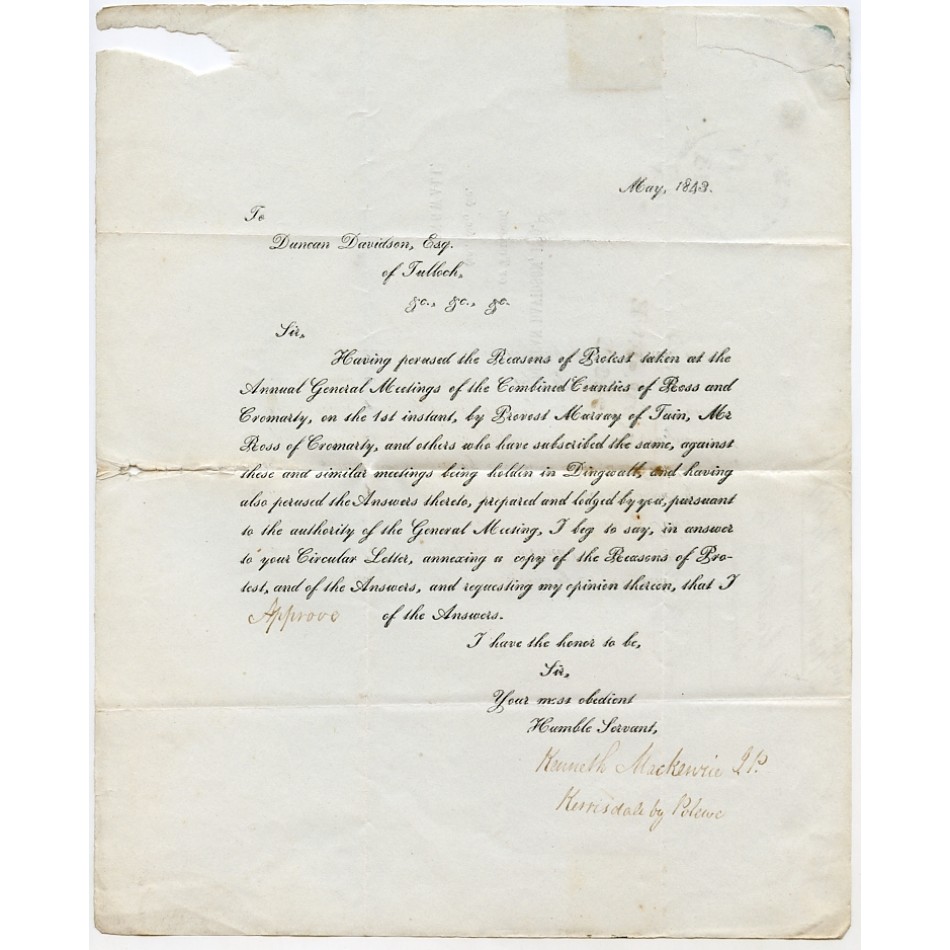 May, 1843.
To
Duncan Davidson, Esq.
of Tulloch,
&c., &c., &c.
Sir,
Having perused the Reasons of Protest taken at the
Annual General Meetings of the Combined Counties of Ross and
Cromarty, on the 1st instant, by Provost Murray of Tain, Mr
Ross of Cromarty, and others who have subscribed the same, against
these and similar meetings being holden in Dingwall, and having
also perused the Answers thereto, prepared and lodged by you, pursuant
to the authority of the General Meeting, I beg to say, in answer
to your Circular Letter, annexing a copy of the Reasons of Pro-
test, and of the Answers, and requesting my opinion thereon, that I
Approve of the Answers.
I have the honor to be,
Sir,
Your most obedient
Humble Servant,
Kenneth Mackenzie J.P.
Kerrisdale by Polewe